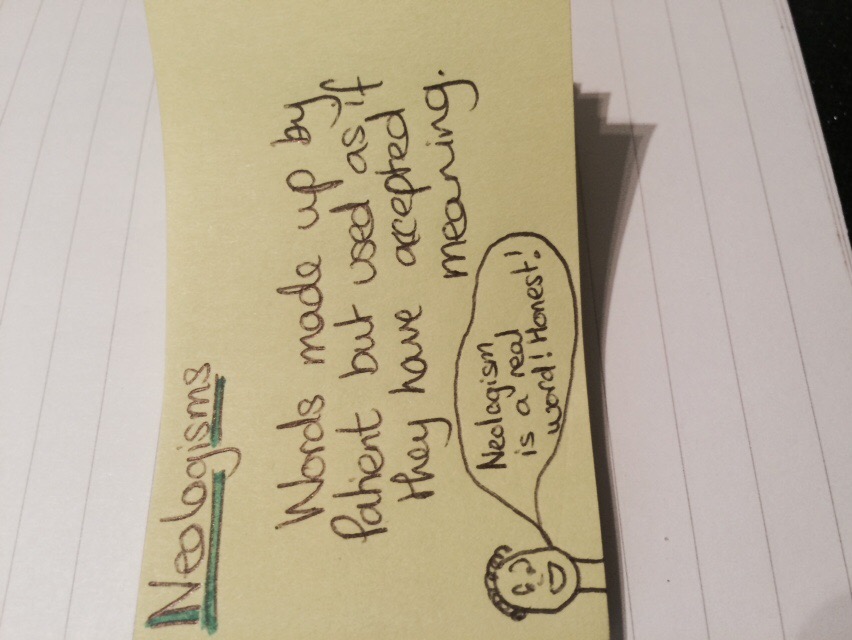 Neologisms
Words made up by
Patient but used as if
they have accepted
meaning.
Neologism
is a real
word! Honest!